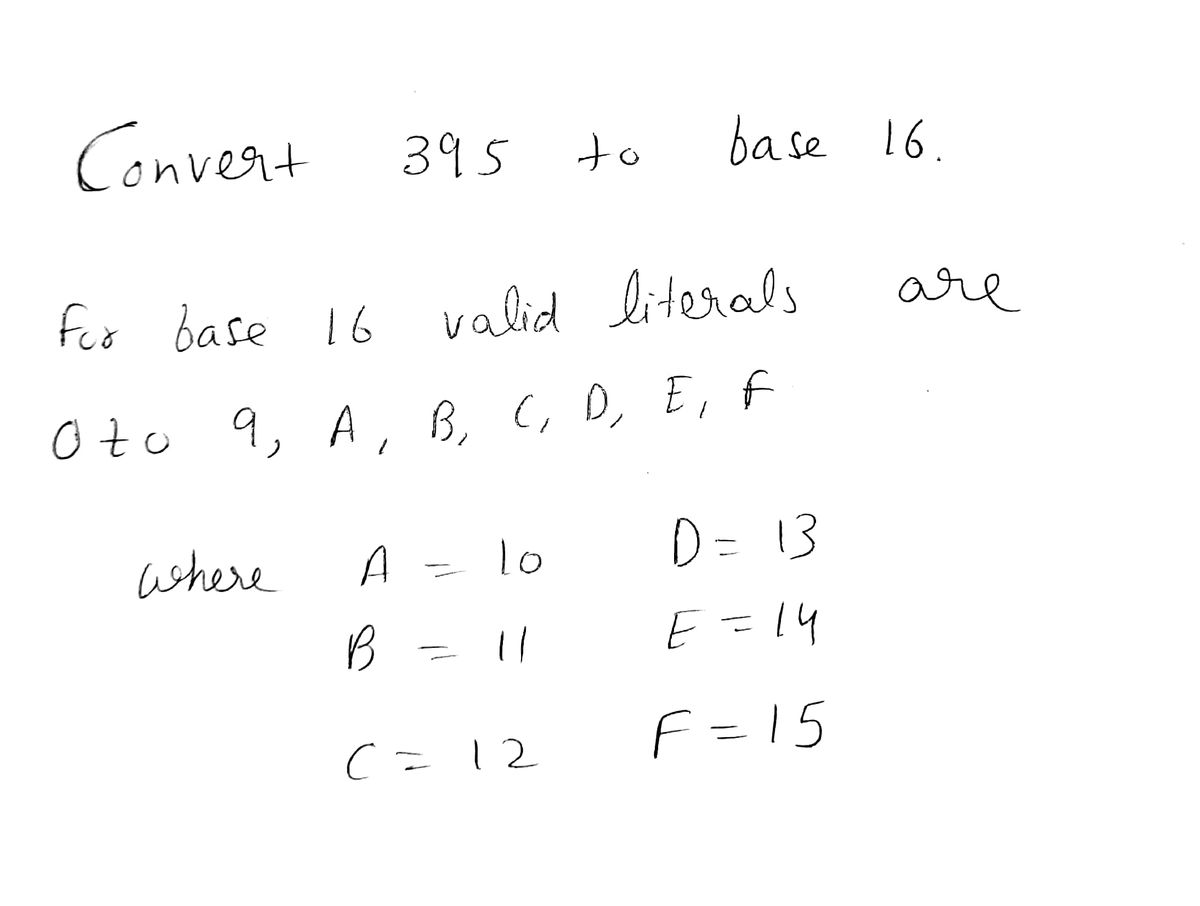 Convert 395 to base 16.
For base 16 valid literals are
0 to 9, A, B, C, D, E, F
where A = 10 D = 13
B = 11 E = 14
C = 12 F = 15